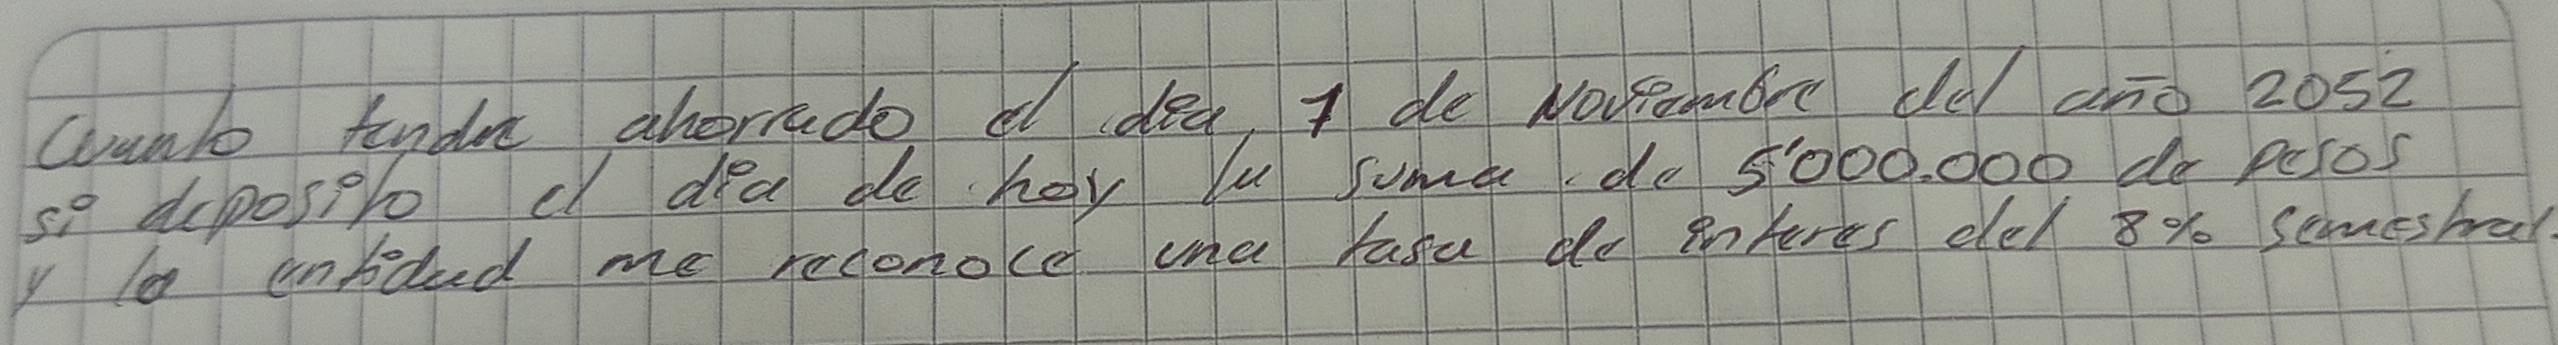 Cuanto tendre ahorrado el dia, 1 de Noviembre del año 2052
si deposito el dia de hoy la suma de 5'000.000 de pesos
y la entidad me reconoce una tasa de interes del 8% semestral.